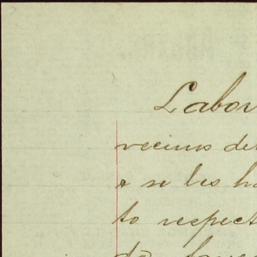 Labor
vecinos de
si les h
to respect